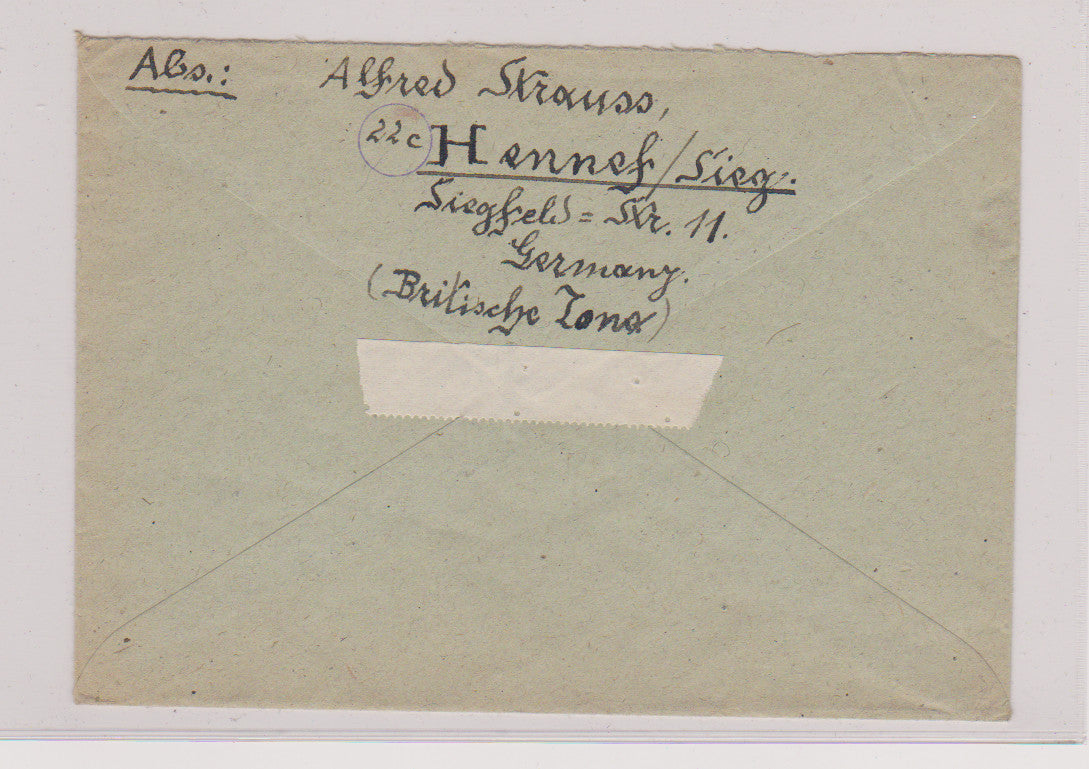 Abs.: Alfred Strauss,
22c Hennef/Sieg.
Siegfeld=Str. 11.
Germany.
(Britische Zone)